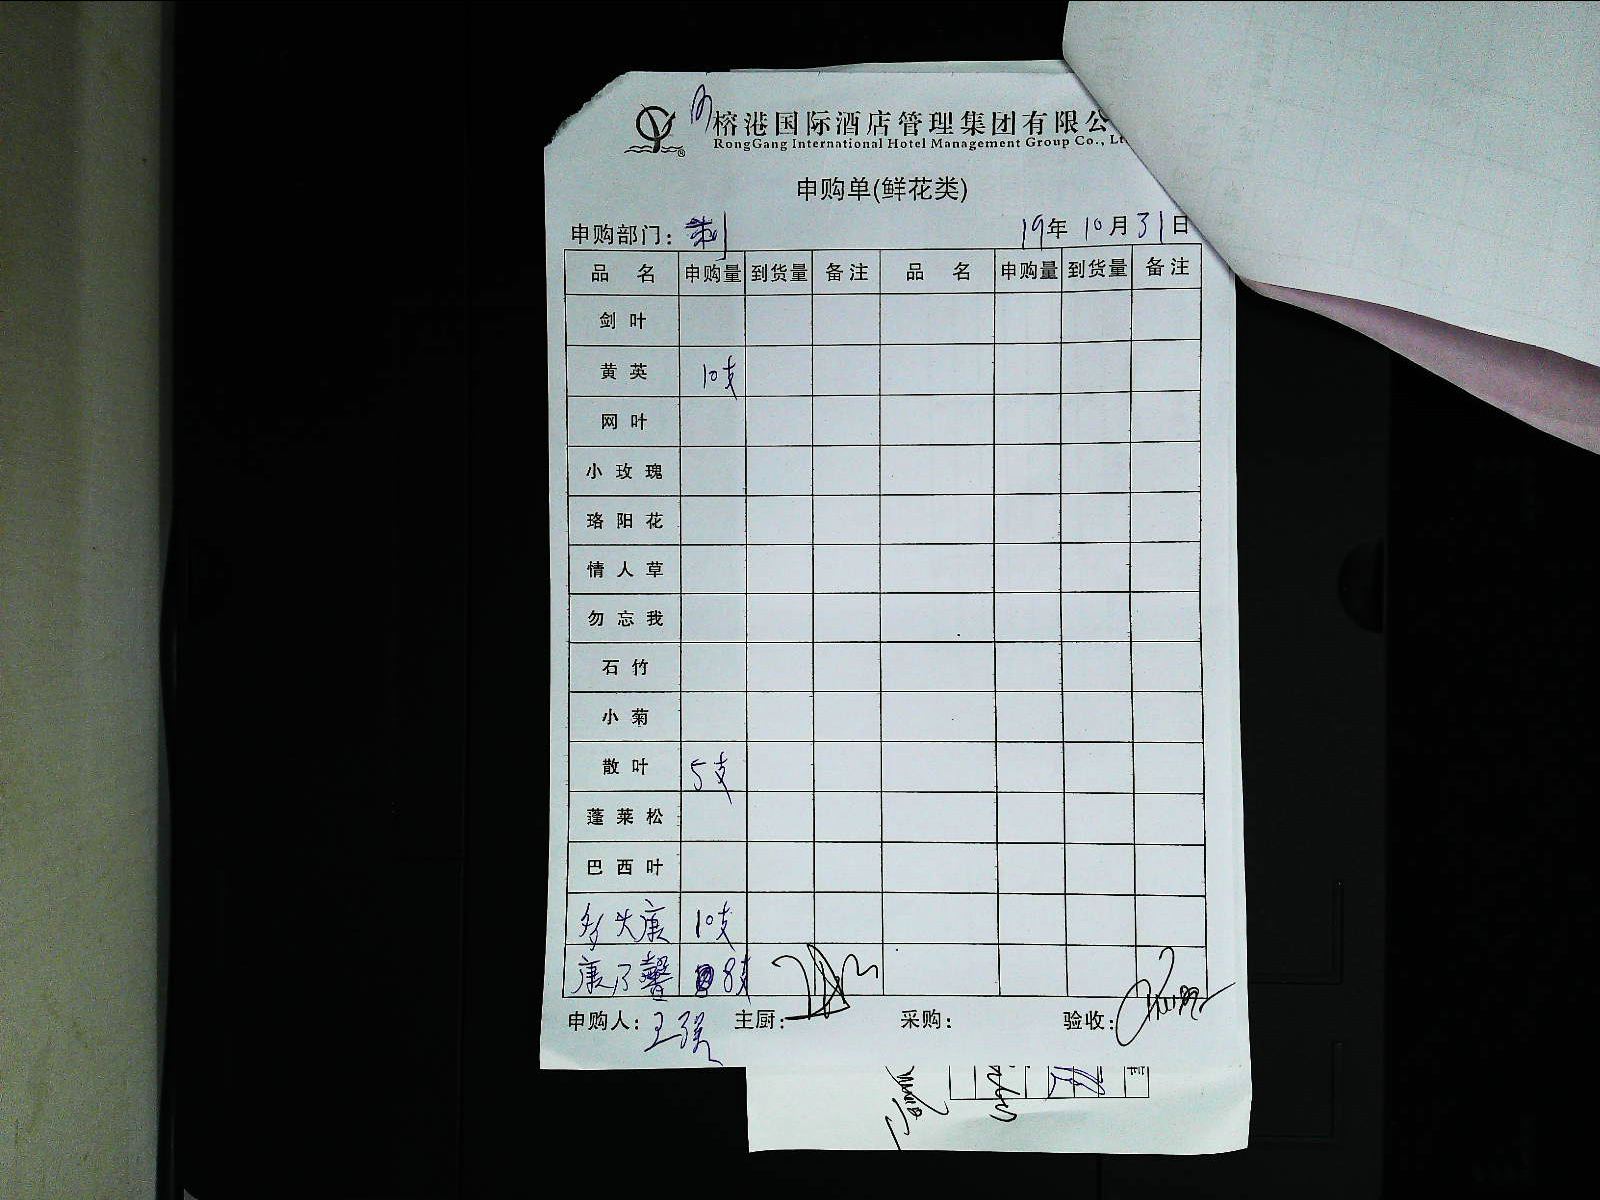 榕港国际酒店管理集团有限公
RongGang International Hotel Management Group Co., Lt
申购单(鲜花类)
申购部门： 19年 10月 31日
品 名 申购量 到货量 备注 品 名 申购量 到货量 备注
剑叶
黄英 10支
网叶
小玫瑰
珞阳花
情人草
勿忘我
石竹
小菊
散叶 5支
蓬莱松
巴西叶
多头康 10支
康乃馨 8支
申购人： 王强 主厨： 采购： 验收：